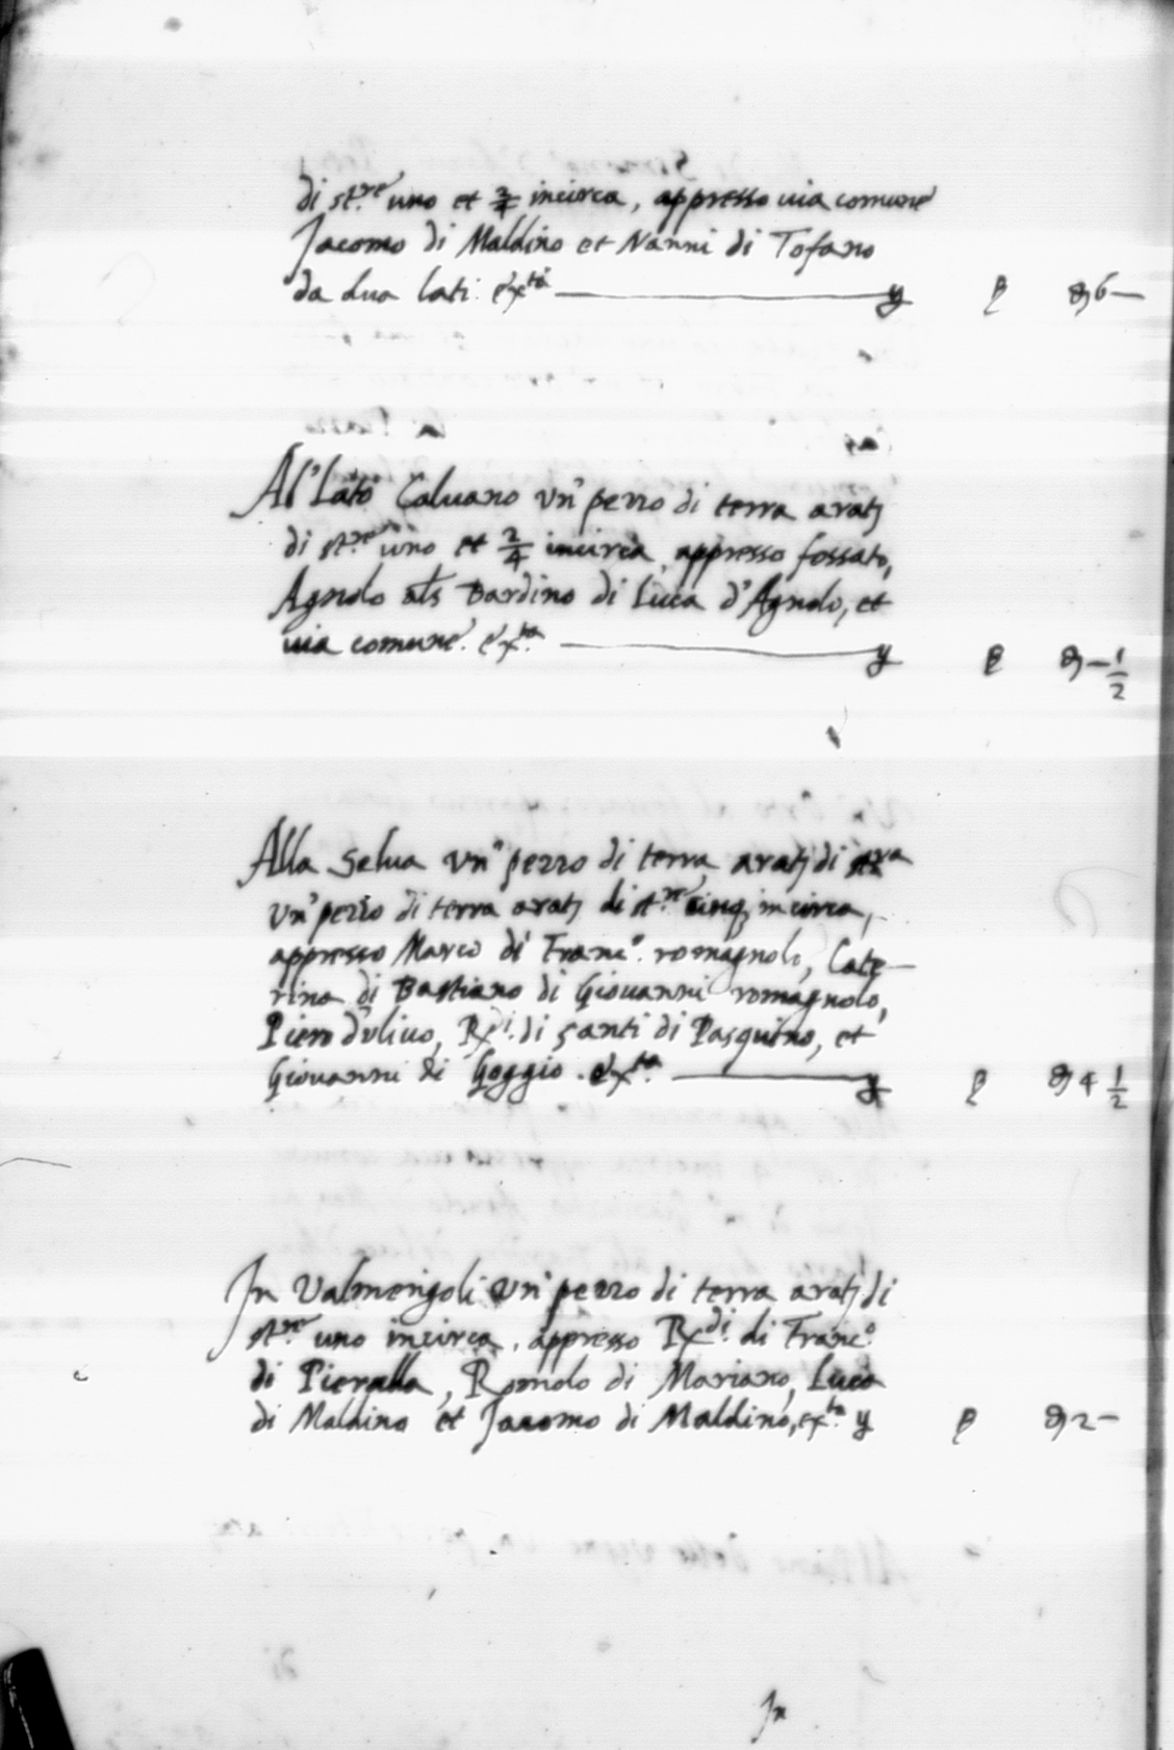 di st.re uno et 2/4 incirca, appresso uia comune
Jacomo di Maldino et Nanni di Tofano
da dua lati. ex.ta
6—
Al'Lato Caluano Vn' pezzo di terra arat
di st.re uno et 2/4 incirca, appresso fossato,
Agnolo als Bardino di Luca d'Agnolo, et
uia comune. ex.ta
— 1/2
Alla Selua Vn' pezzo di terra arat di
Vn' pezzo di terra arat di st.re cinq incirca,
appresso Marco di Franc.o romagnolo, Cate-
rina di Bastiano di Giouanni romagnolo,
Piero d'vliuo, Rx.di di Santi di Pasquino, et
Giouanni di Goggio. ex.ta
4 1/2
In Valmerigoli Vn' pezzo di terra arat di
st.re uno incirca, appresso Rx.di di Franc.o
di Pieralla, Romolo di Mariano, Luca
di Maldino et Jacomo di Maldino, ex.ta
2—
In